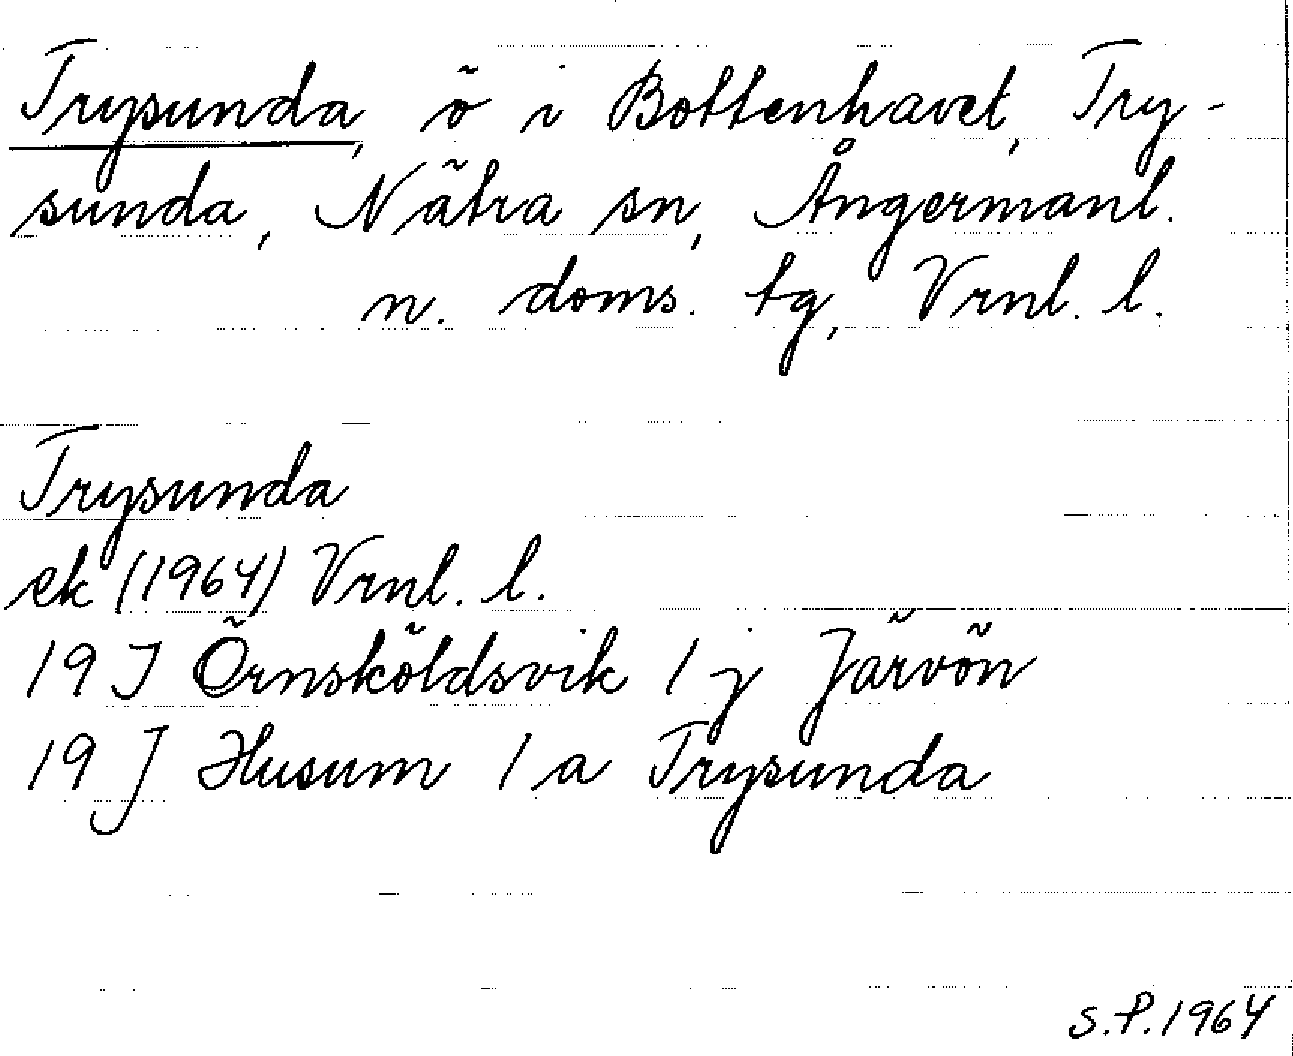 Trysunda, ö i Bottenhavet, Try-
sunda, Nätra sn, Ångermanl.
n. doms. tg, Vrnl. l.
Trysunda
ek (1964) Vrnl. l.
19 I Örnsköldsvik 1 j Järvön
19 J Husum 1 a Trysunda
S.P. 1964